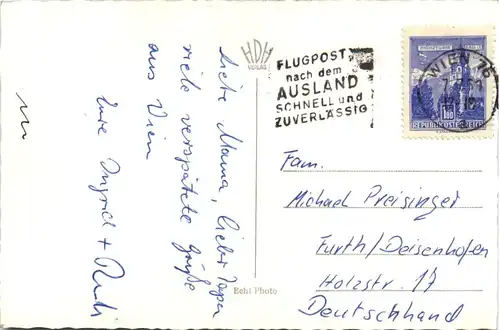 Liebe Mama, lieber Papa
viele verspätete Grüße
aus Wien
Eure Ingrid + Rudi
HDH
VERLAG
FLUGPOST
nach dem
AUSLAND
SCHNELL und
ZUVERLÄSSIG
WIEN 76
REPUBLIK ÖSTERREICH
Fam.
Michael Preisinger
Furth/Deisenhofen
Holzstr. 17
Deutschland
Echt Photo